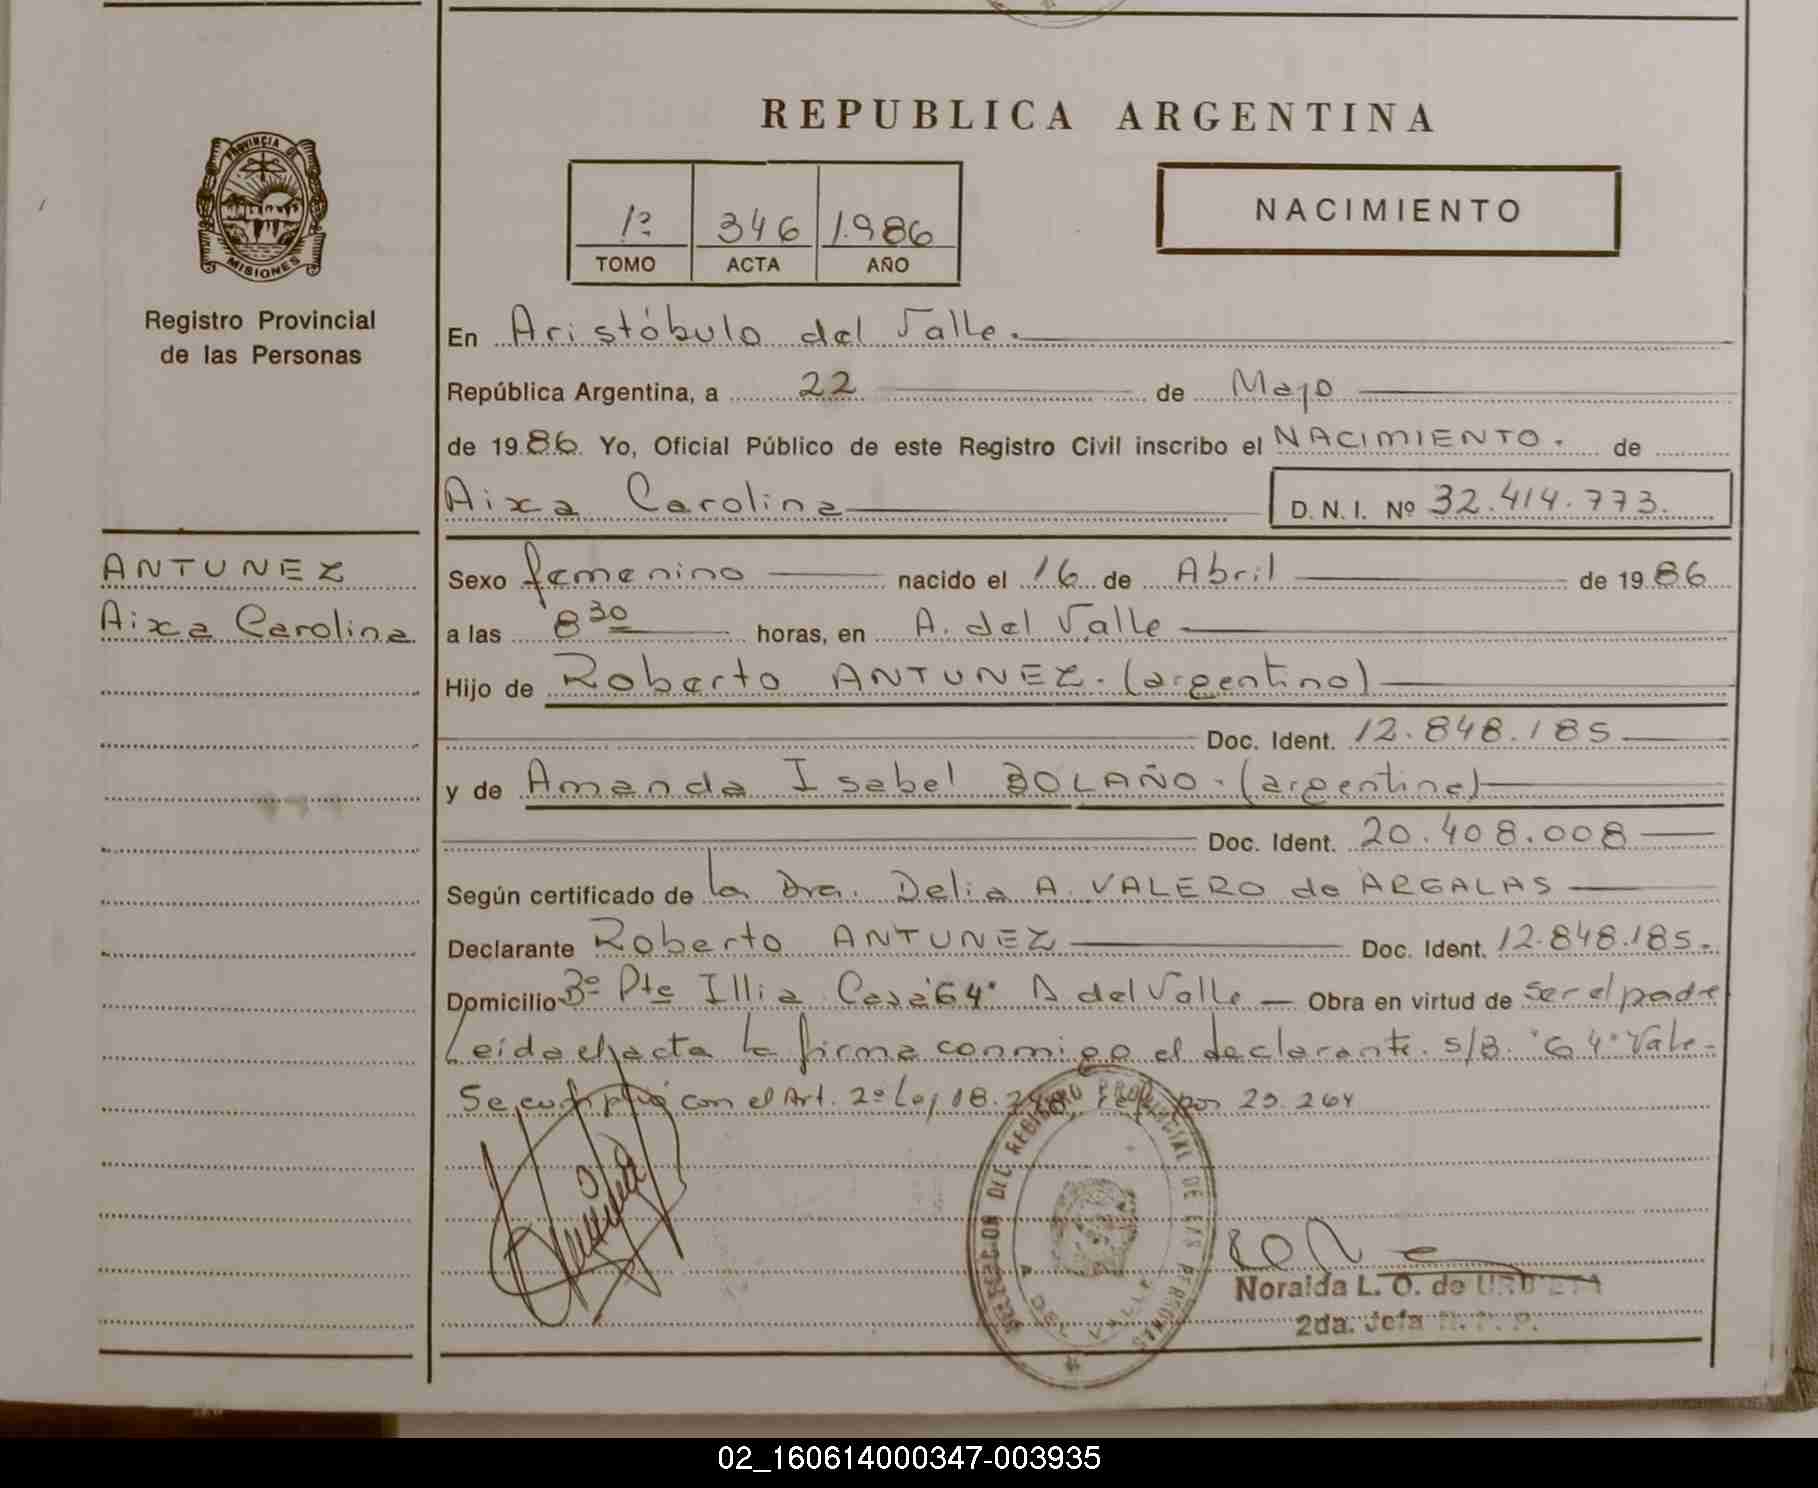 REPUBLICA ARGENTINA
PROVINCIA DE MISIONES
Registro Provincial
de las Personas
1º 346 1.986
TOMO ACTA AÑO
NACIMIENTO
En Aristóbulo del Valle.
República Argentina, a 22 de Mayo
de 1986. Yo, Oficial Público de este Registro Civil inscribo el NACIMIENTO. de
Aixa Carolina D. N. I. Nº 32.414.773.
ANTUNEZ
Aixa Carolina
Sexo femenino nacido el 16 de Abril de 1986
a las 8 30 horas, en A. del Valle
Hijo de Roberto ANTUNEZ. (argentino)
Doc. Ident. 12.848.185
y de Amanda Isabel BOLAÑO. (argentina)
Doc. Ident. 20.408.008
Según certificado de la Dra. Delia A. VALERO de ARGALAS
Declarante ROberto ANTUNEZ Doc. Ident. 12.848.185.-
Domicilio Bº Pte Illia Casa "64" A del Valle - Obra en virtud de ser el padre
Leída el acta la firma conmigo el declarante. s/B. "64" Vale-
Se cumplió con el Art. 2º Ley 18.248, por 23.264
DELEGACION DEL REGISTRO PROVINCIAL DE LAS PERSONAS
A. DEL VALLE
Noralda L. O. de
2da. Jefa R. P. P.
02_160614000347-003935